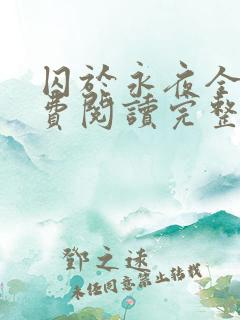 囚於永夜全
費閱讀完整
鄧之遠
未任同意禁止轉載